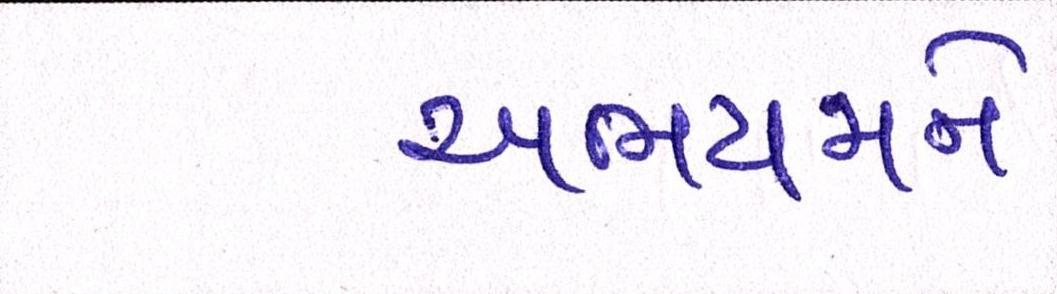 અભયમને